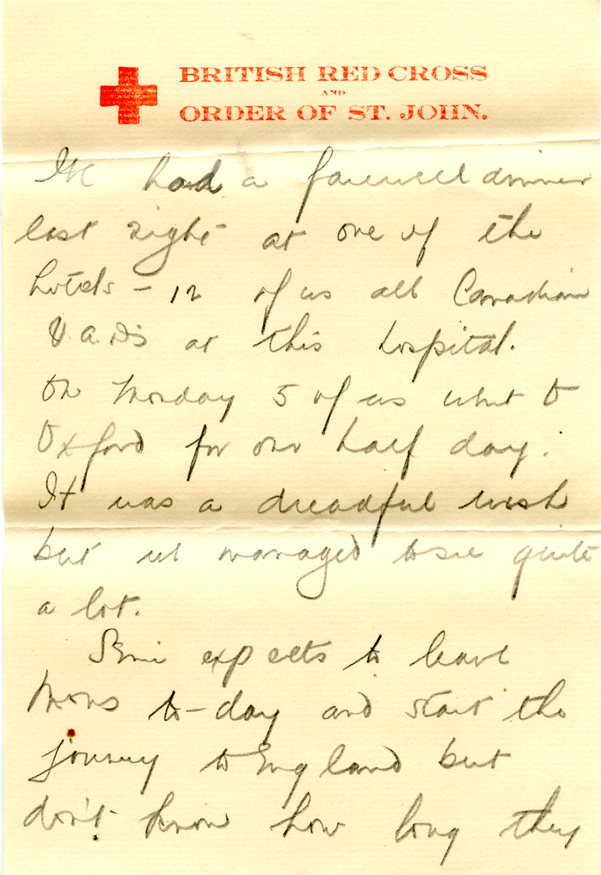 BRITISH RED CROSS
AND
ORDER OF ST. JOHN.
We had a farewell dinner
last night at one of the
hotels - 12 of us all Canadian
V.A.D's at this hospital.
On Monday 5 of us went to
Oxford for our half day.
It was a dreadful rush
but we managed to see quite
a lot.
expects to leave
Mons to-day and start the
journey to England but
don't know how long they